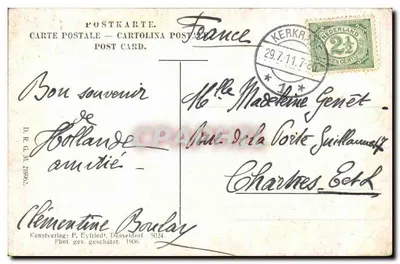 POSTKARTE.
CARTE POSTALE – CARTOLINA POSTALE
POST CARD.
France
KERKRADE
29.7.11.7-8
NEDERLAND
2½
CENT
Bon souvenir
de
Hollande
amitié
Clémentine Boulay
Mlle Madeleine Genêt
Rue de la Porte Guillaume 47
Chartres E et L
D. R. G. M.
Kunstverlag: F. Eyfriedt, Düsseldorf 5024
Phot. ges. geschützt. 1906.